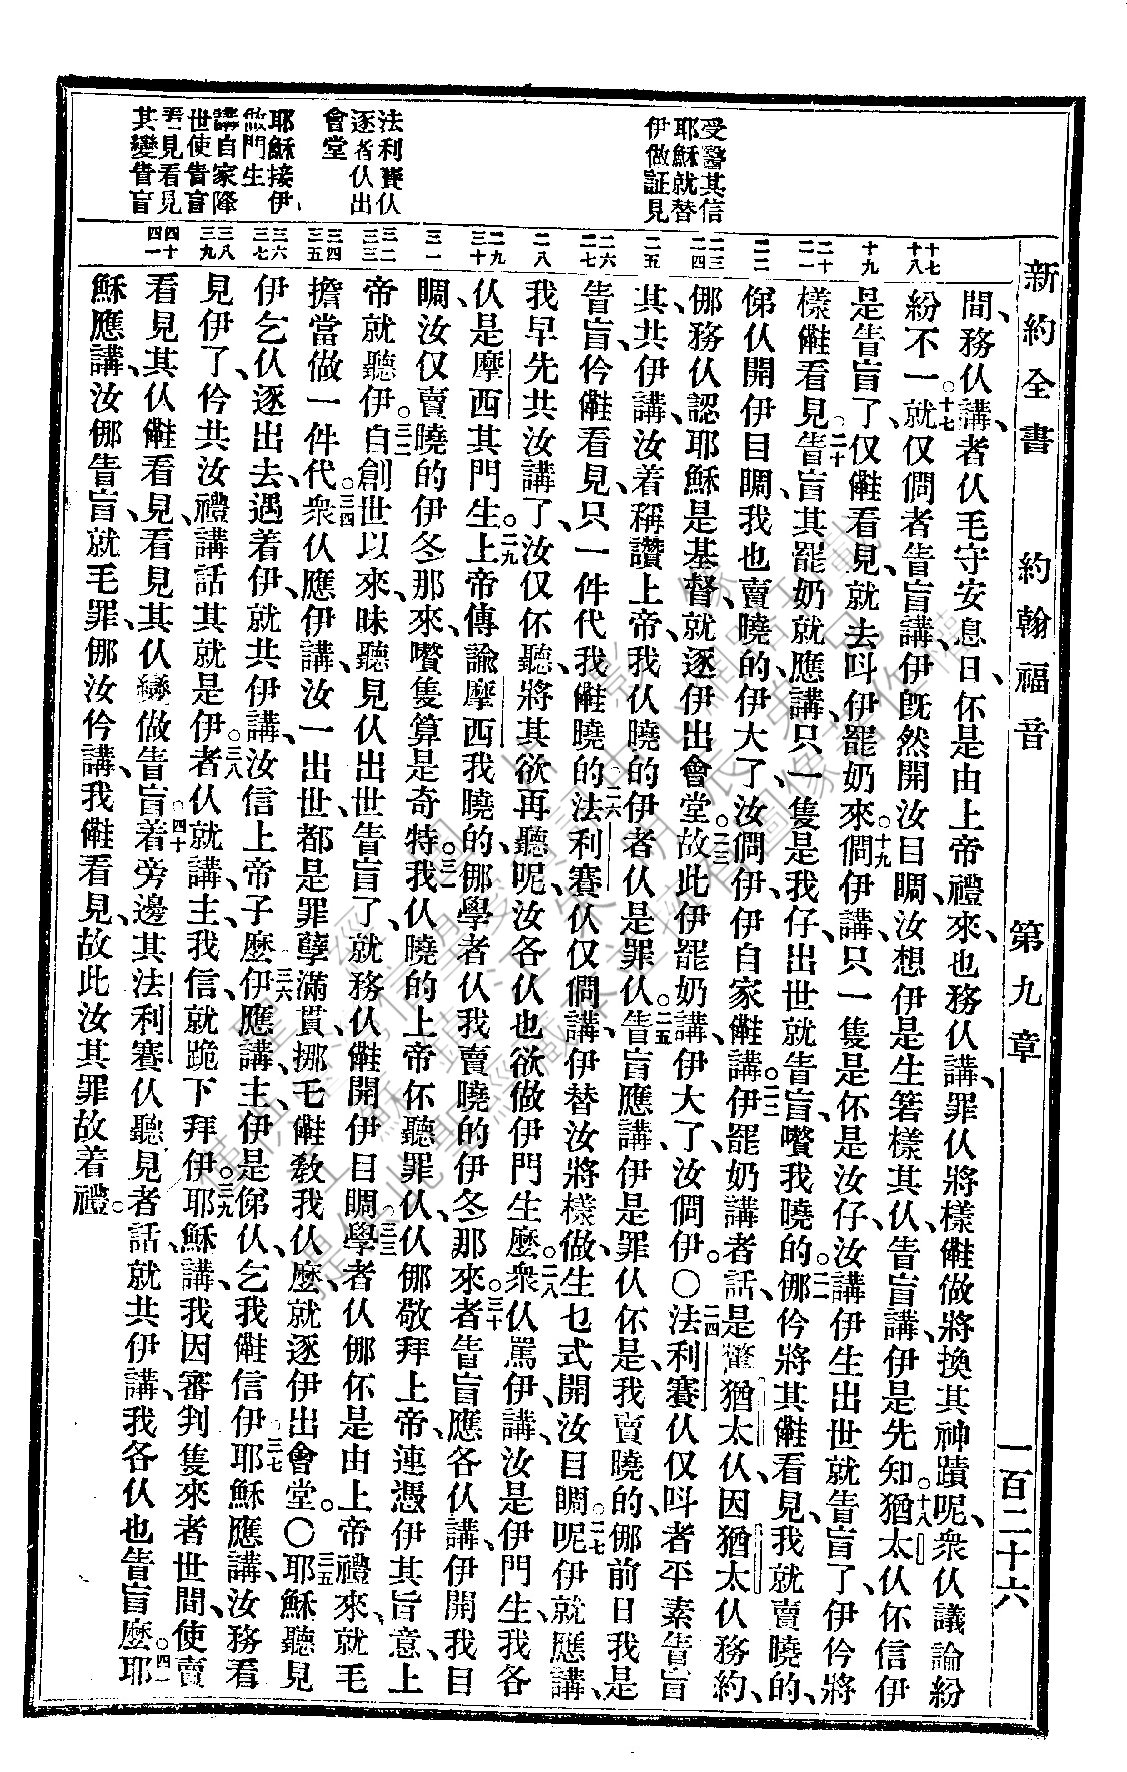 新約全書 約翰福音 第九章 一百二十六
受醫其信
耶穌就替
伊做証見
法利賽仈
逐者仈出
會堂
耶穌接伊
做門生
講自家降
世使眚盲
看見看見
其變眚盲
十七
十八
十九
二十
二一
二二
二三
二四
二五
二六
二七
二八
二九
三十
三一
三二
三三
三四
三五
三六
三七
三八
三九
四十
四一
間、務仈講、者仈毛守安息日、伓是由上帝禮來、也務仈講、罪仈將樣㑪做將換其神蹟呢、衆仈議論紛
紛不一、十七就仅僩者眚盲講、伊旣然開汝目瞯、汝想伊是生箬樣其仈、眚盲講、伊是先知。十八猶太仈伓信伊
是眚盲了、仅㑪看見、就去呌伊罷奶來。十九僩伊講、只一隻是伓是汝仔、汝講伊生出世就眚盲了、伊仱將
樣㑪看見。二十眚盲其罷奶就應講、只一隻是我仔、出世就眚盲、嚽我曉的。二一㑚仱將其㑪看見、我就賣曉的、
俤仈開伊目瞯、我也賣曉的、伊大了、汝僩伊、伊自家㑪講。二二伊罷奶講者話、是懼猶太仈、因猶太仈務約、
㑚務仈認耶穌是基督、就逐伊出會堂。二三故此伊罷奶講、伊大了、汝僩伊。〇二四法利賽仈仅呌者平素眚盲
其、共伊講、汝着稱讚上帝、我仈曉的伊者仈是罪仈。二五眚盲應講、伊是罪仈伓是、我賣曉的、㑚前日我是
眚盲、仱㑪看見、只一件代我㑪曉的。二六法利賽仈仅僩講、伊替汝將樣做、生乜式開汝目瞯呢。二七伊就應講、
我早先共汝講了、汝仅伓聽、將其欲再聽呢、汝各仈也欲做伊門生麽。二八衆仈罵伊講、汝是伊門生、我各
仈是摩西其門生。二九上帝傳諭摩西、我曉的、㑚學者仈、我賣曉的伊冬那來。三十者眚盲應各仈講、伊開我目
瞯、汝仅賣曉的伊冬那來、嚽隻算是奇特。三一我仈曉的上帝伓聽罪仈、仈㑚敬拜上帝、連憑伊其旨意、上
帝就聽伊。三二自創世以來、昧聽見仈出世眚盲了、就務仈㑪開伊目瞯。三三學者仈㑚伓是由上帝禮來、就毛
擔當做一件代。三四衆仈應伊講、汝一出世都是罪孽滿貫、挪乇㑪敎我仈麽、就逐伊出會堂。〇三五耶穌聽見
伊乞仈逐出去、遇着伊、就共伊講、汝信上帝子麽。三六伊應講、主、伊是俤仈、乞我㑪信伊。三七耶穌應講、汝務看
見伊了、仱共汝禮講話其就是伊。三八者仈就講、主、我信、就跪下拜伊。三九耶穌講、我因審判隻來者世間、使賣
看見其仈㑪看見、看見其仈變做眚盲。四十着旁邊其法利賽仈聽見者話、就共伊講、我各仈也眚盲麽。四一耶
穌應講、汝㑚眚盲、就毛罪、㑚汝仱講、我㑪看見、故此汝其罪故着禮。